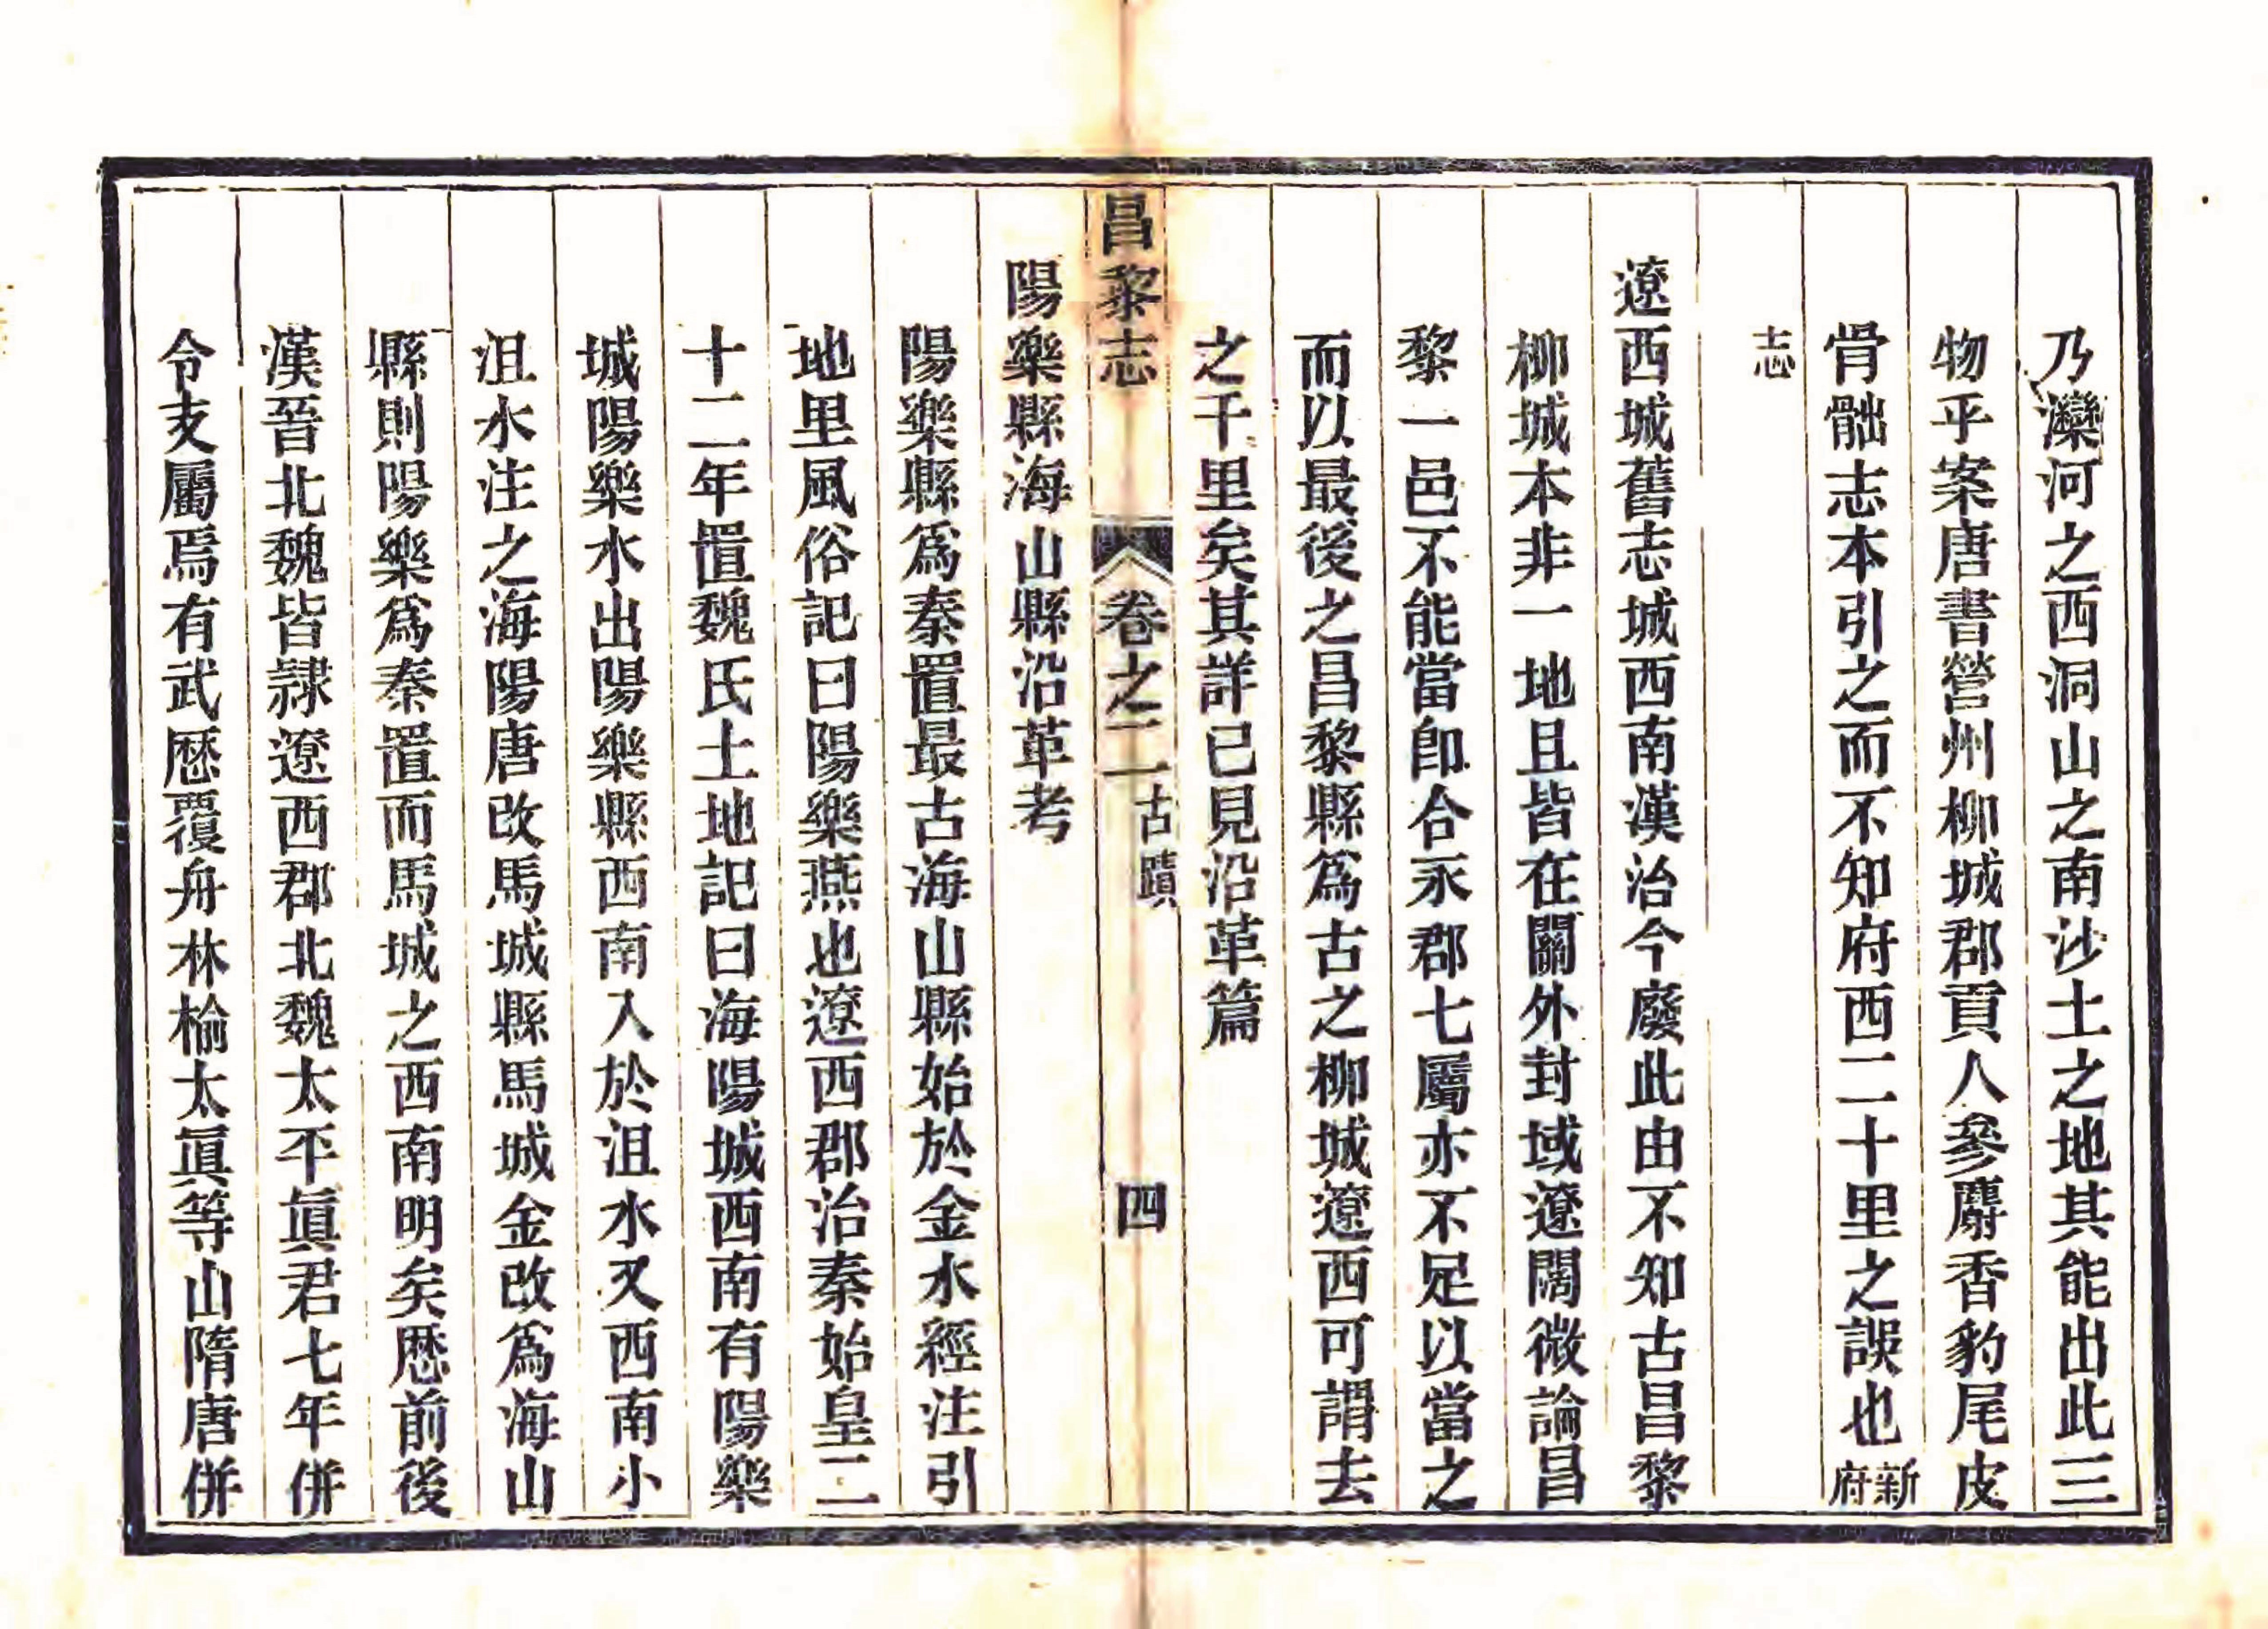 乃灤河之西洞山之南沙土之地其能出此三
物乎案唐書營州柳城郡貢人參麝香豹尾皮
骨𩨷志本引之而不知府西二十里之誤也新府
志
遼西城舊志城西南漢治今廢此由不知古昌黎
柳城本非一地且皆在關外封域遼闊微論昌
黎一邑不能當卽合永郡七屬亦不足以當之
而以最後之昌黎縣爲古之柳城遼西可謂去
之千里矣其詳已見沿革篇
昌黎志 卷之二 古蹟 四
陽樂縣海山縣沿革考
陽樂縣爲秦置最古海山縣始於金水經注引
地里風俗記曰陽樂燕也遼西郡治秦始皇二
十二年置魏氏土地記曰海陽城西南有陽樂
城陽樂水出陽樂縣西南入於沮水又西南小
沮水注之海陽唐改馬城縣馬城金改爲海山
縣則陽樂爲秦置而馬城之西南明矣歷前後
漢晉北魏皆隸遼西郡北魏太平眞君七年併
令支屬焉有武歷覆舟林榆太眞等山隋唐併